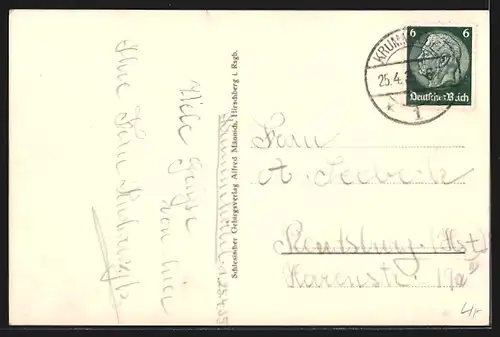 Krummhübel, 25.4.39
Viele Grüsse
von hier
Ihre Frau
Schlesischer Gebirgsverlag Alfred Männich, Hirschberg i. Rsgb.
KRUMM
25.4.
* 1
6 6
Deutsches Reich
Frau
A. Seebeck
Rendsburg (Hst)
Karenstr. 19a